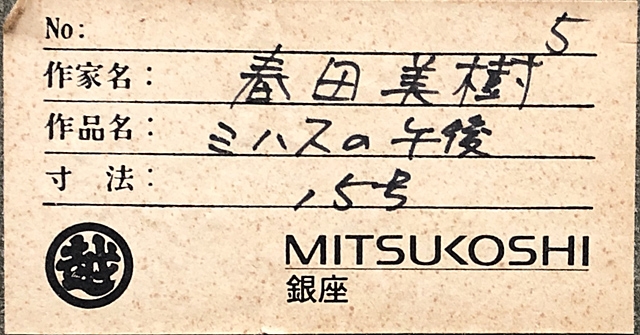 No: 5
作家名: 春田美樹
作品名: ミハスの午後
寸 法: 15号
越 MITSUKOSHI
銀座